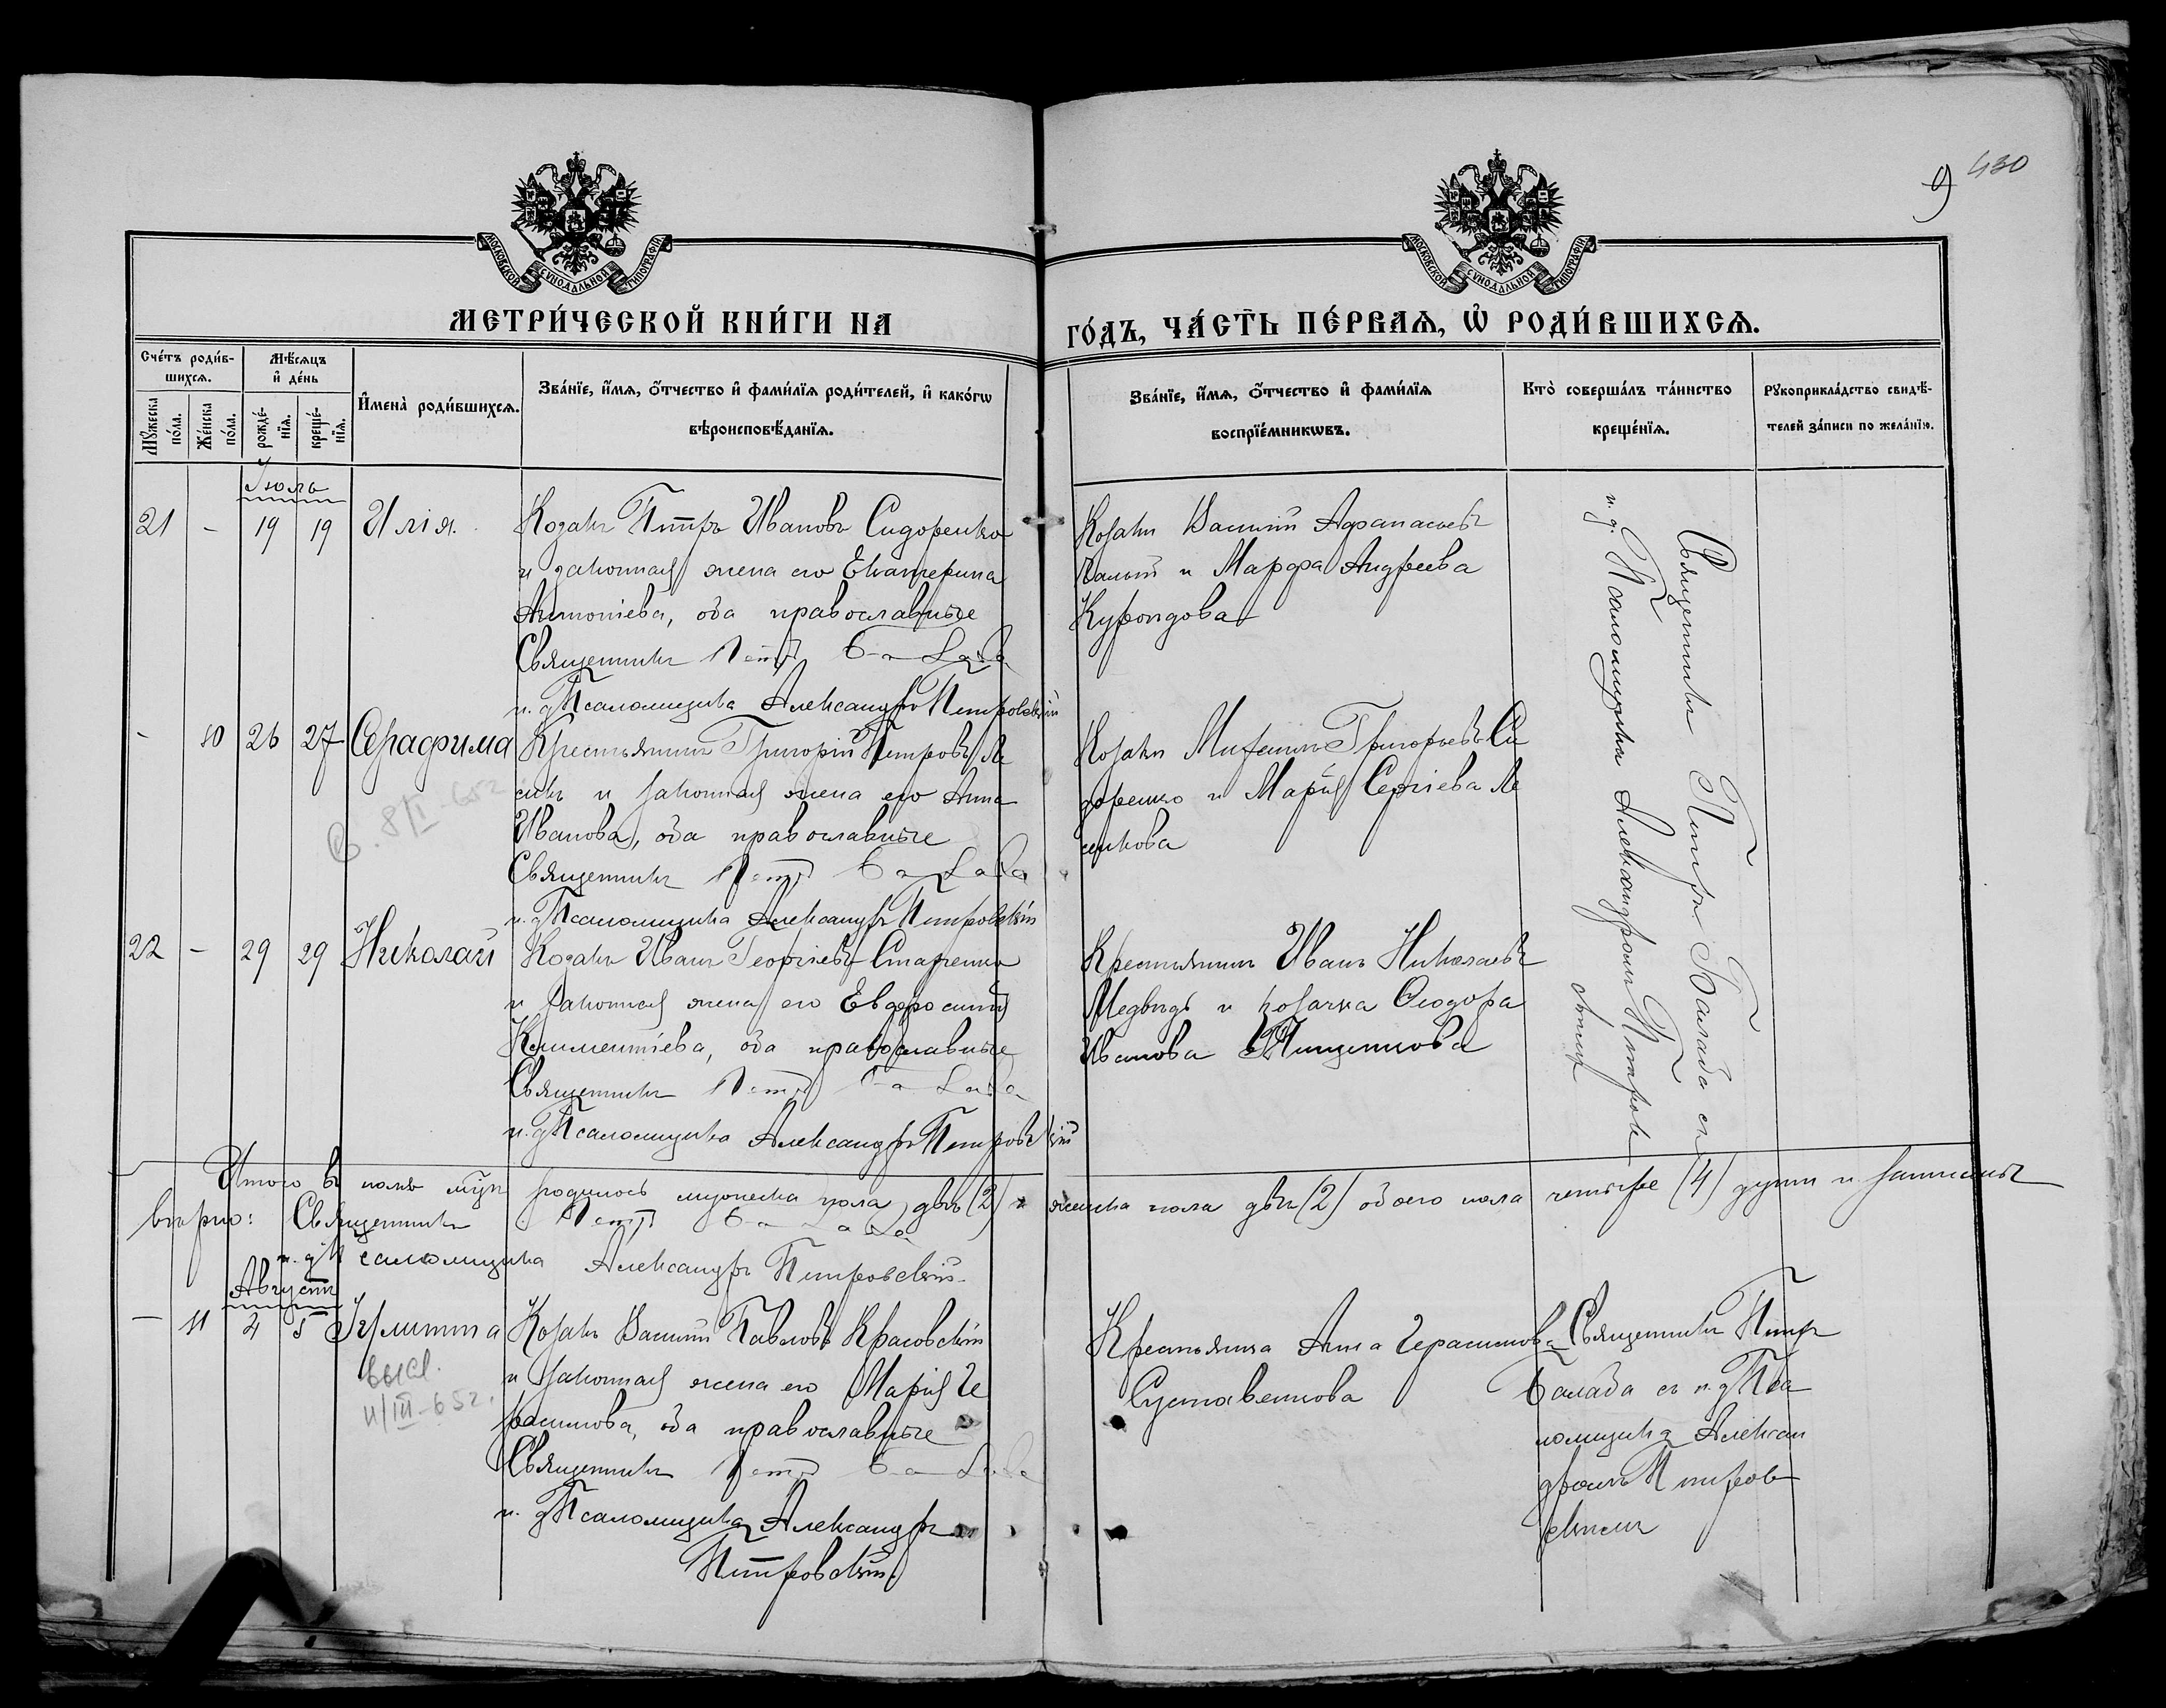 9 430
МОСКОВСКОЙ СУНОДАЛЬНОЙ ТИПОГРАФІИ
МОСКОВСКОЙ СУНОДАЛЬНОЙ ТИПОГРАФІИ
МЕТРИ́ЧЕСКОЙ КНИ́ГИ НА
ГО́ДЪ, ЧА́СТЬ ПЕ́РВАЯ, Ѡ҆ РОДИ́ВШИХСЯ.
Сче́тъ роди́в-
шихся.
Мѣ́сяцъ
и҆ де́нь
Му́жеска
по́ла.
Же́нска
по́ла.
рожде́-
нїя.
креще́-
нїя.
И҆мена̀ роди́вшихся.
Зва́нїе, и҆́мя, ѻ҆́тчество и҆ фами́лїя роди́телей, и҆ како́гѡ
вѣроисповѣ́данїя.
Зва́нїе, и҆́мя, ѻ҆́тчество и҆ фами́лїя
воспрїе́мникѡвъ.
Кто̀ соверша́лъ та́инство
креще́нїя.
Рукоприкла́дство свидѣ́-
телей за́писи по жела́нїю.
Іюль
21 - 19 19 Илія.
Козакъ Петръ Ивановъ Сидоренко
и законная жена его Екатерина
Антоніева, оба православные
Священникъ Петръ Балаба
и. д. Псаломщика Александръ Петровскій
Козаки Василій Афанасьевъ
и Марфа Андреева
- 10 26 27 Серафима
Крестьянинъ Григорій Петровъ Ле
сикъ и законная жена его Анна
Иванова, оба православные
Священникъ Петръ Балаба
и. д. Псаломщика Александръ Петровскій
Козаки Михаилъ Григорьевъ Си
доренко и Марія Сергіева Ле
сикова
22 - 29 29 Николай
Козакъ Иванъ Георгіевъ Стареико
и законная жена его Евфросинія
Климентіева, оба православные
Священникъ Петръ Балаба
и. д. Псаломщика Александръ Петровскій
Крестьянинъ Иванъ Николаевъ
Медвидь и козачка Феодора
Иванова
Священникъ Петръ Балаба съ
и. д. Псаломщика Александромъ Петров
скимъ
Итого въ іюлѣ мцѣ родилось мужеска пола двѣ (2) и женска пола двѣ (2) обоего пола четыре (4) души и записаны
вѣрно: Священникъ Петръ Балаба
и. д. Псаломщика Александръ Петровскій
Августъ
- 11 4 5 Іулитта
Козакъ Василій Павловъ Красовскій
и законная жена его Марія Ге
расимова, оба православные
Священникъ Петръ Балаба
и. д. Псаломщика Александръ
Петровскій.
Крестьянка Анна Герасимова
Суставенкова
Священникъ Петръ
Балаба съ и. д. Пса
ломщика Алексан
дромъ Петров
скимъ
высл.
11/III-65г.